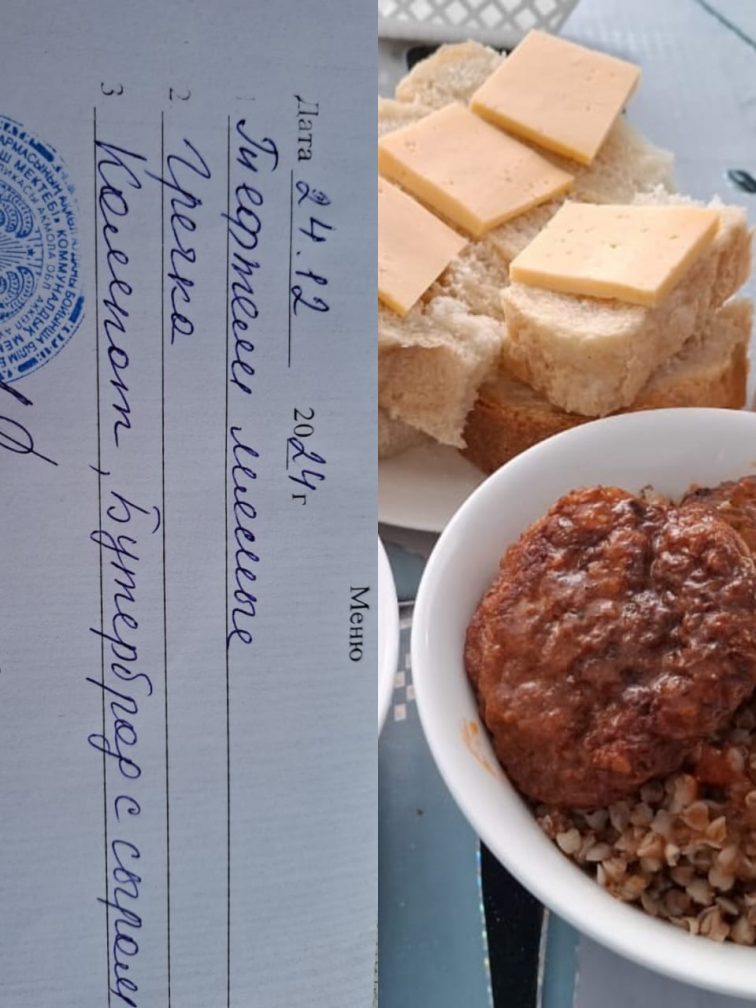 Меню
Дата 24.12 2024 г
1 Тефтели мясные
2 Гречка
3 Компот, Бутерброд с сыром